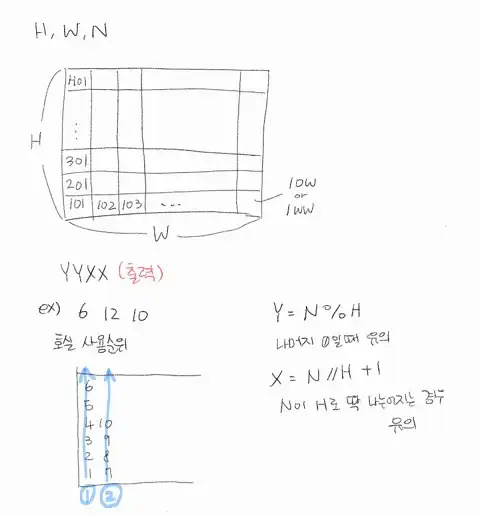 H, W, N
H01
⋮
H
301
201
101 102 103 ...
10W
or
1WW
W
YYXX (출력)
ex) 6 12 10
호실 사용순위
6
5
4 10
3 9
2 8
1 7
① ②
Y = N%H
나머지 0일때 유의
X = N//H +1
N이 H로 딱 나누어지는 경우
유의